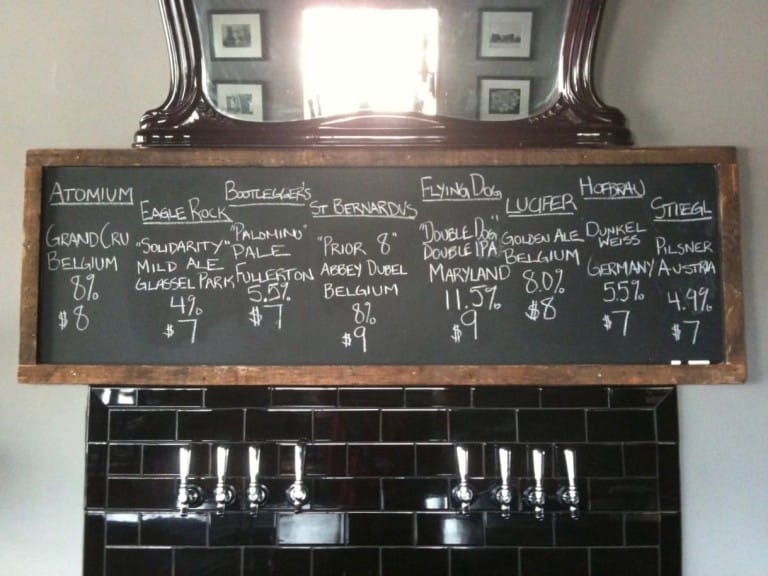 ATOMIUM
GRAND CRU
BELGIUM
8%
$8
EAGLE ROCK
"SOLIDARITY"
MILD ALE
GLASSEL PARK
4%
$7
BOOTLEGGER'S
"PALOMINO"
PALE
FULLERTON
5.5%
$7
ST BERNARDUS
"PRIOR 8"
ABBEY DUBEL
BELGIUM
8%
$9
FLYING DOG
"DOUBLE DOG"
DOUBLE IPA
MARYLAND
11.5%
$9
LUCIFER
GOLDEN ALE
BELGIUM
8.0%
$8
HOFBRAU
DUNKEL
WEISS
GERMANY
5.5%
$7
STIEGL
PILSNER
AUSTRIA
4.9%
$7